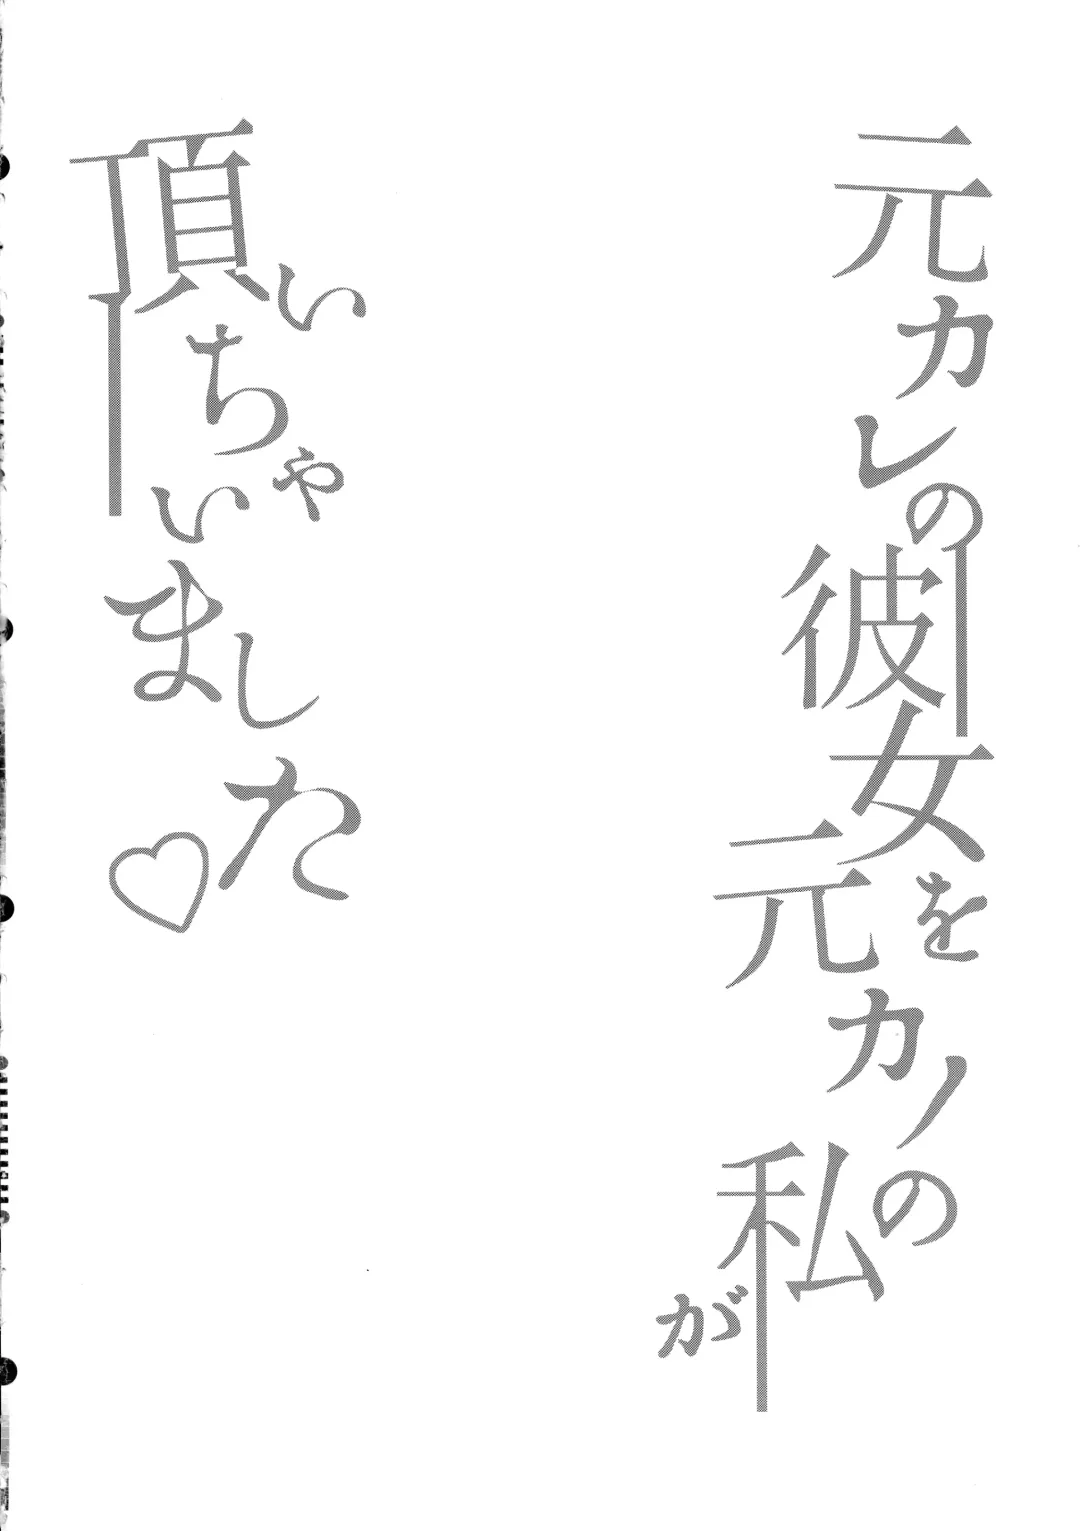 元カレの彼女を
元カノの私が
頂いちゃいました♡